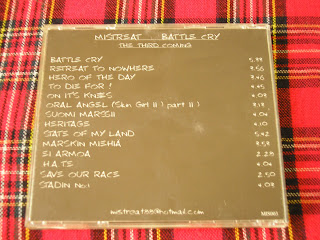 MISTREAT . BATTLE CRY
THE THIRD COMING
BATTLE CRY 5.49
RETREAT TO NOWHERE 3.56
HERO OF THE DAY 3.46
TO DIE FOR ! 4.45
ON IT'S KNEES 4.09
ORAL ANGEL (Skin Girl II ) part II ) 3.18
SUOMI MARSSII 4.04
HERITAGE 4.10
STATE OF MY LAND 5.42
MARSKIN MIEHIA 3.58
EI ARMOA 2.28
H.A.T.E 4.04
SAVE OUR RACE 2.50
STADIN No.1 4.08
mistreat88@hotmail.com